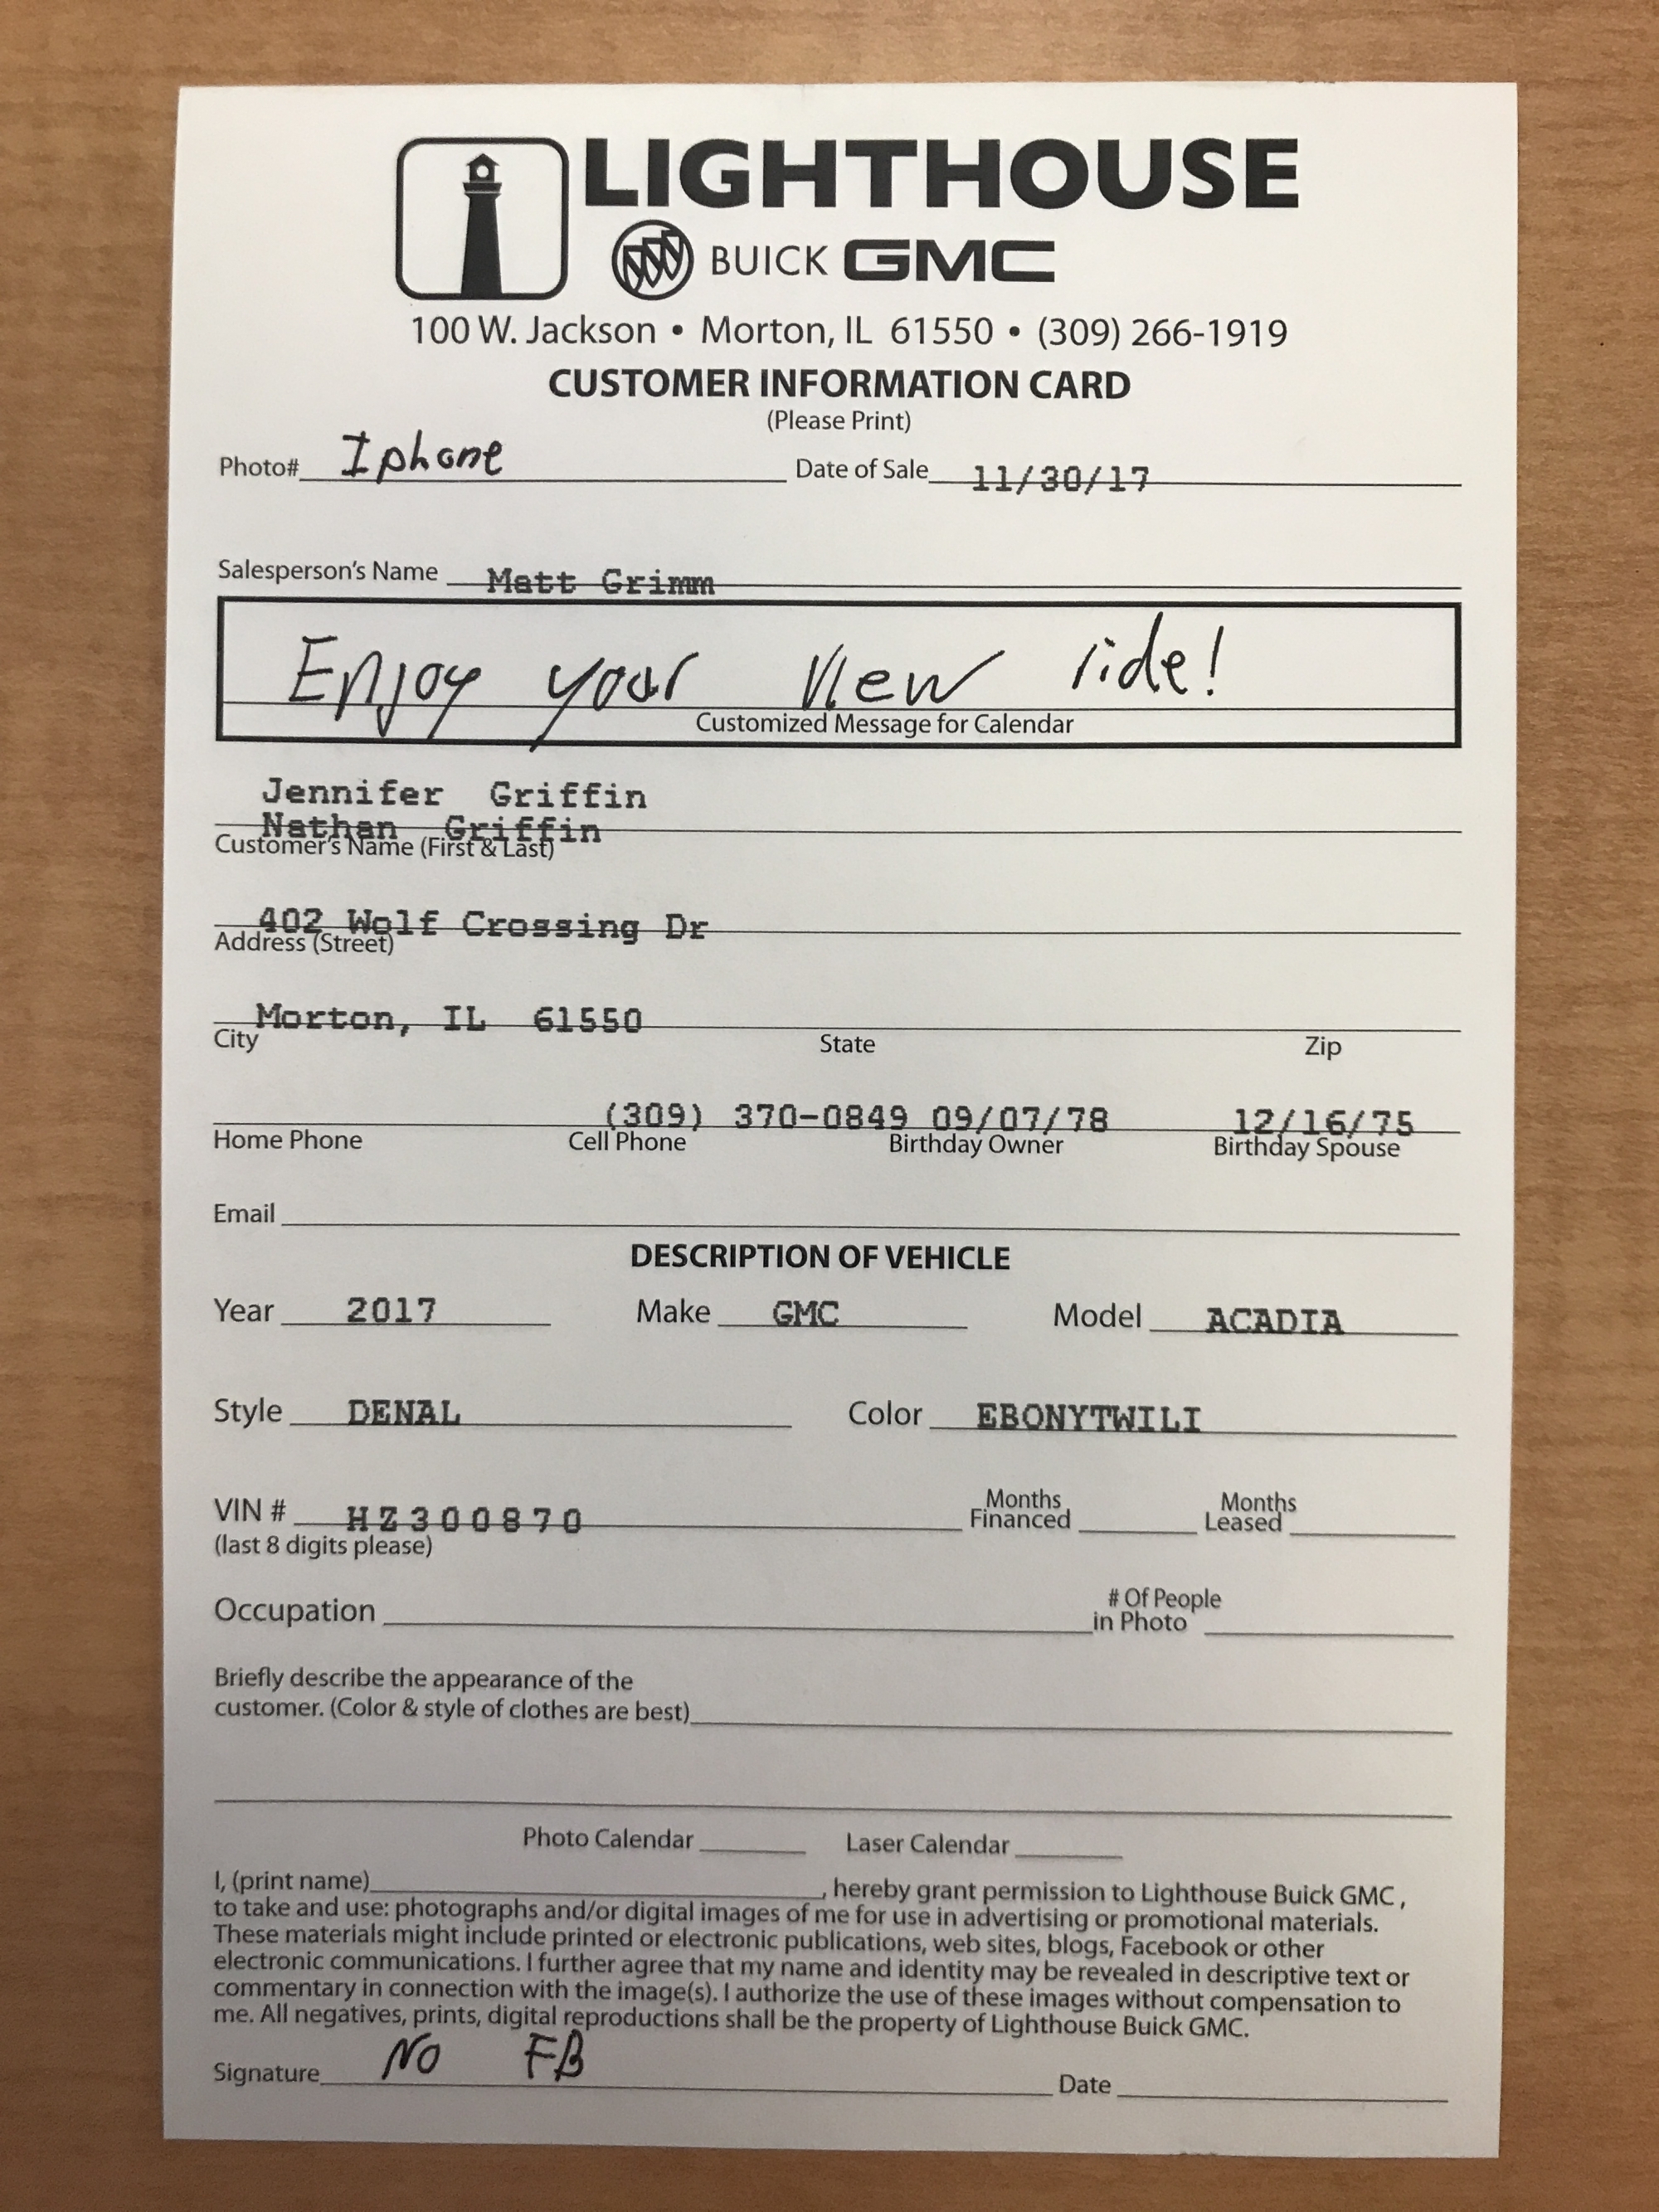 LIGHTHOUSE
BUICK GMC
100 W. Jackson • Morton, IL 61550 • (309) 266-1919
CUSTOMER INFORMATION CARD
(Please Print)
Photo# Iphone Date of Sale 11/30/17
Salesperson's Name Matt Grimm
Enjoy your new ride!
Customized Message for Calendar
Jennifer Griffin
Nathan Griffin
Customer's Name (First & Last)
402 Wolf Crossing Dr
Address (Street)
Morton, IL 61550
City State Zip
(309) 370-0849 09/07/78 12/16/75
Home Phone Cell Phone Birthday Owner Birthday Spouse
Email
DESCRIPTION OF VEHICLE
Year 2017 Make GMC Model ACADIA
Style DENAL Color EBONYTWILI
VIN # HZ300870 Months Financed Months Leased
(last 8 digits please)
Occupation # Of People in Photo
Briefly describe the appearance of the
customer. (Color & style of clothes are best)
Photo Calendar Laser Calendar
I, (print name) , hereby grant permission to Lighthouse Buick GMC ,
to take and use: photographs and/or digital images of me for use in advertising or promotional materials.
These materials might include printed or electronic publications, web sites, blogs, Facebook or other
electronic communications. I further agree that my name and identity may be revealed in descriptive text or
commentary in connection with the image(s). I authorize the use of these images without compensation to
me. All negatives, prints, digital reproductions shall be the property of Lighthouse Buick GMC.
Signature NO FB Date